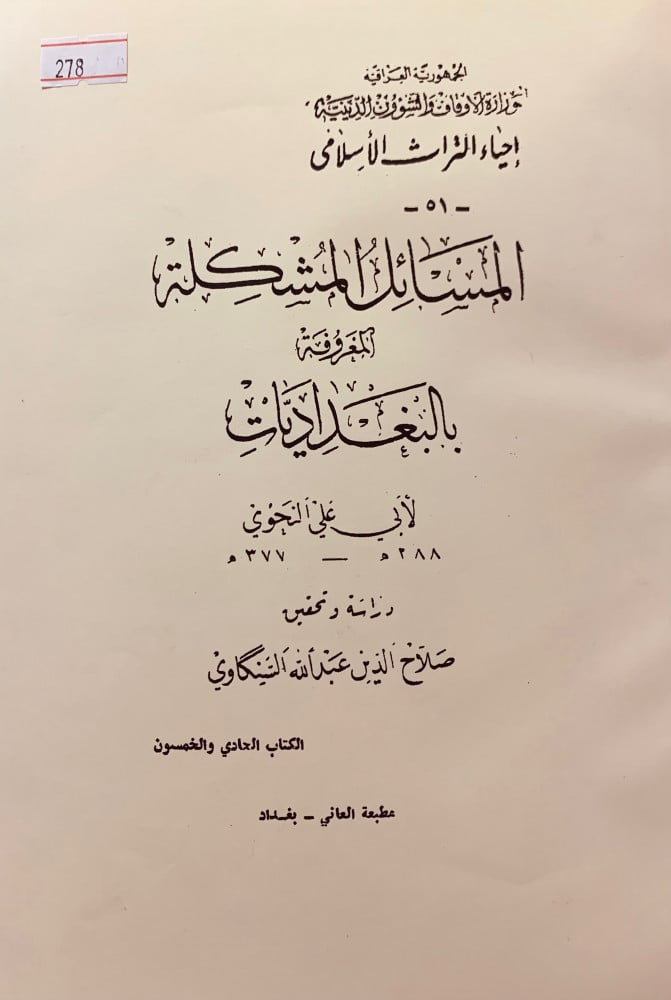 278
الجمهورية العراقية
وزارة الأوقاف والشؤون الدينية
إحياء التراث الإسلامي
- ٥١ -
المسَائِل المُشكِلة
المعَرُوفَة
بالبَغْدَاديَّاتِ
لأبي عَلي النحَوي
٢٨٨ هـ — ٣٧٧ هـ
دراسة وتحقيق
صَلاَح الدين عَبدالله السَّنِكَاوي
الكتاب الحادي والخمسون
مطبعة العاني - بغداد